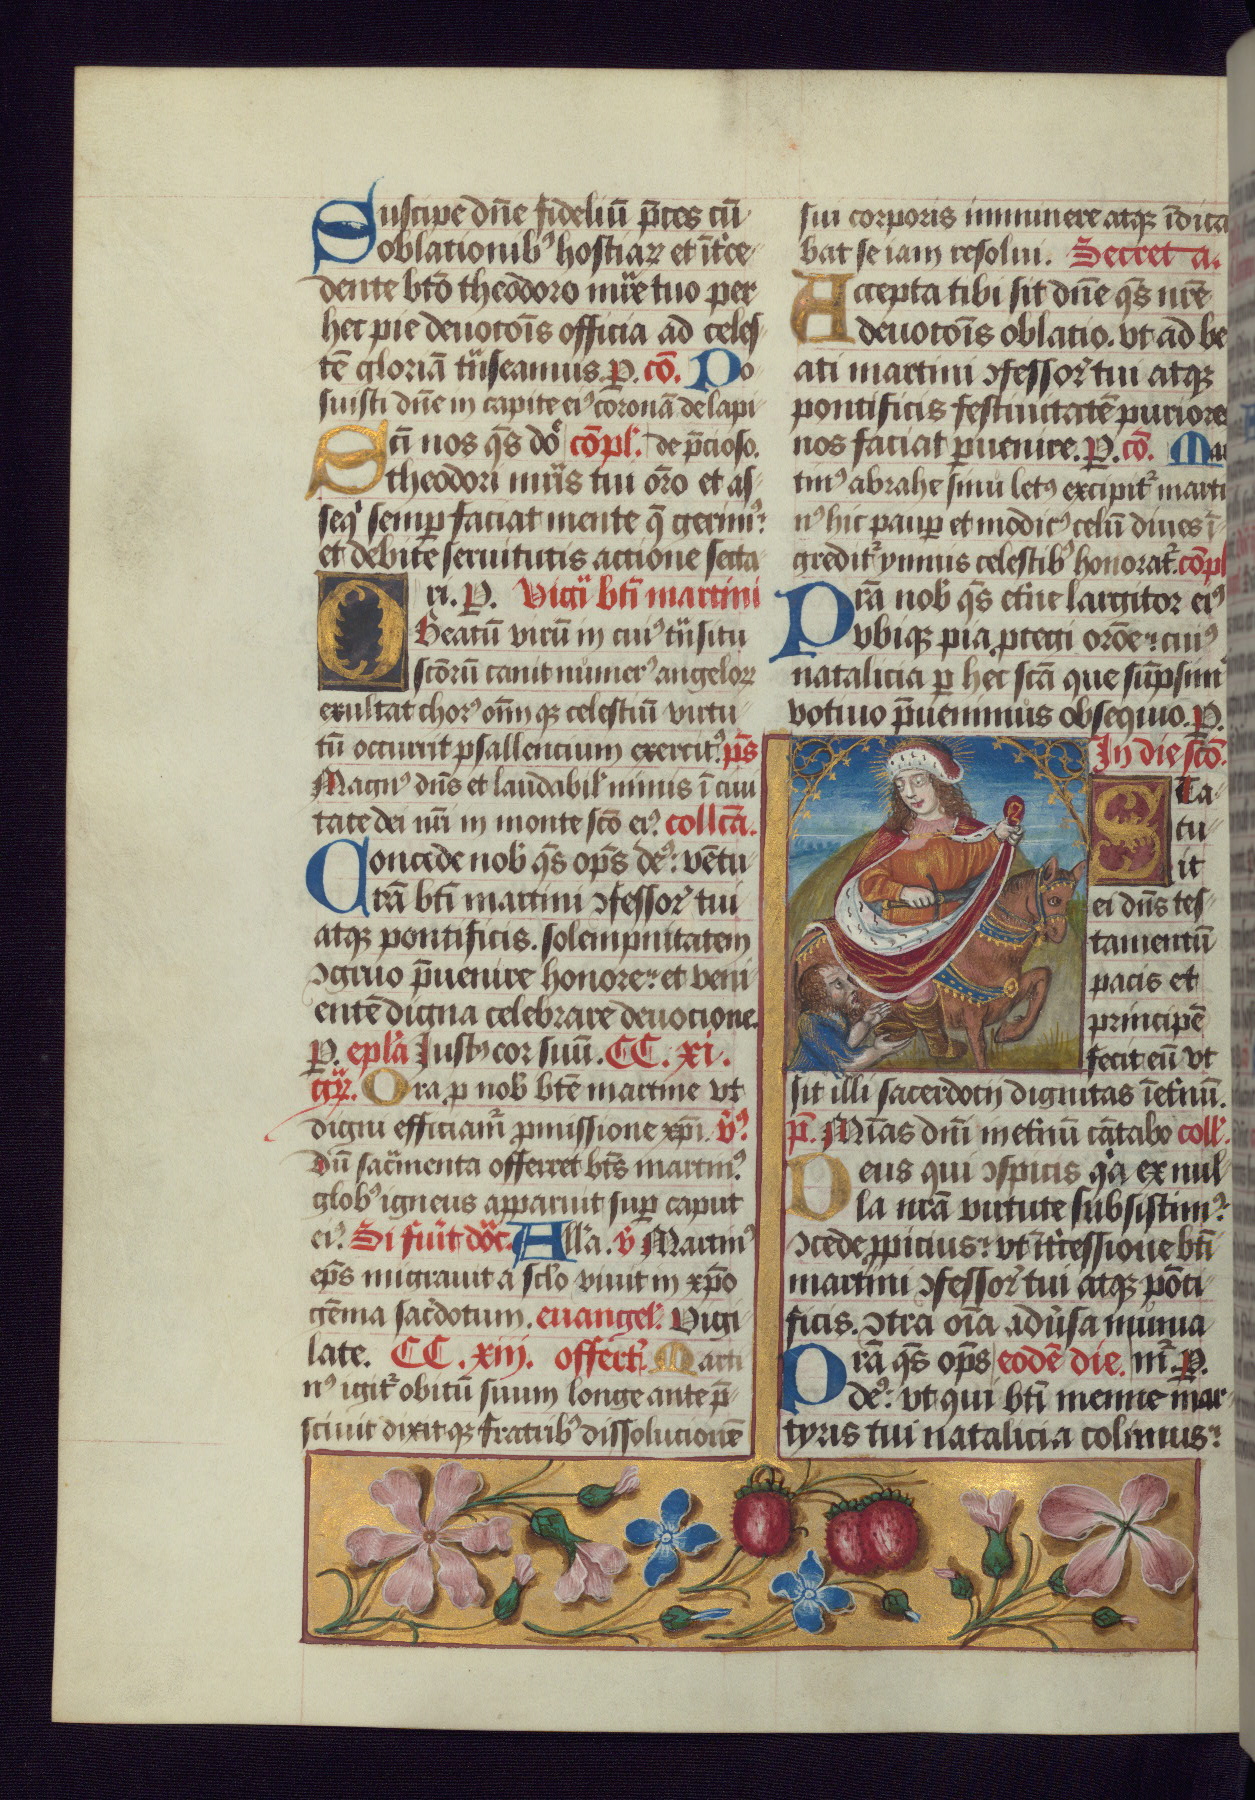 Suscipe dñe fideliũ p̃ces cũ
oblationibꝰ hostiaꝝ et ĩt̾ce-
dente btõ theodoro mr̃e tuo per
hec pie deuotõis officia ad celes-
tẽ gloriã trãseamus. P. cõ. Po-
suisti dñe in capite eiꝰ coronã de lapi-
Scĩ nos q̃s dõ cõpl. de p̃cioso.
theodori mr̃is tui or̃o et as-
seqͥ semꝑ faciat mente q̃ gerimꝰ:
et debite seruitutis actione secta-
ri. P. Vigił bt̃i martini
O Beatũ virũ in cuiꝰ trãsitu
scõrũ canit numerꝰ angeloꝝ
exultat chorꝰ om̃iꝗ celestiũ virtu-
tũ occurrit psallencium exercitꝰ. p̃s
Magnꝰ dñs et laudabił nimis ĩ ciui
tate dei nr̃i in monte scõ eiꝰ. collcã.
Concede nobꝭ q̃s op̃s deꝰ: vẽtu-
rã bt̃i martini ↄfessorꝭ tui
atqꝫ pontificis. solempnitatem
ↄgruo p̃uenire honore: et veni
entẽ digna celebrare deuocione.
P. epl̃a Iustꝰ cor suũ. CC. xi.
gr̃. Ora ꝓ nobꝭ bt̃e martine vt
digni efficiamͬ ꝓmissione xp̃i. v̾ꝰ
dũ sacͬmenta offerret bt̃s martinꝰ
globꝰ igneus apparuit suꝑ caput
eiꝰ. Si fuĩt dõc. All̃a. v̾ Martinꝰ
ep̃s migrauit a sclõ viuit in xp̃o
gẽma sac̾dotum. euangel. Vigi-
late. CC. xiij. offert. Marti
nꝰ igitͬ obitũ suum longe ante p̃-
sciuit dixitqꝫ fratribꝰ dissolucionẽ
sui corporis imminere atqꝫ ĩdica
bat se iam resolui. Secreta.
Accepta tibi sit dñe q̃s nr̃e
deuotõis oblatio. vt ad be
ati martini ↄfessorꝭ tui atqꝫ
pontificis festiuitatẽ puriores
nos faciat ꝑuenire. P. cõ. Mar
tinꝰ abrahe sinu letꝰ excipitͬ marti
nꝰ hic pauꝑ et modicꝰ celũ diues ĩ-
greditͬ ymnis celestibꝰ honoratͬ. cõpl
Prã nobꝭ q̃s et̾ne largitor eiꝰ
vbiqꝫ pia ꝓtegi orõe: cuiꝰ
natalicia ꝑ hec scã que sũpsimꝰ
votiuo p̃uenimus obsequio. P.
In die scõ.
Sta-
tu-
it
ei dñs tes-
tamentũ
pacis et
principẽ
fecit eũ vt
sit illi sacerdotij dignitas ĩ et̾nũ.
p̃. Mĩas dñi in et̾nũ cãtabo coll.
Deus qui ↄspicis qͥa ex nul-
la nr̃a virtute subsistimꝰ:
ↄcede ꝓpicius: vt ĩt̾cessione bt̃i
martini ↄfessorꝭ tui atqꝫ põti-
ficis. ↄtra oĩa adũsa munia-
Prã q̃s op̃s eodẽ die. mͬ. P.
deꝰ: vt qui bt̃i menne mar-
tyris tui natalicia colimus: